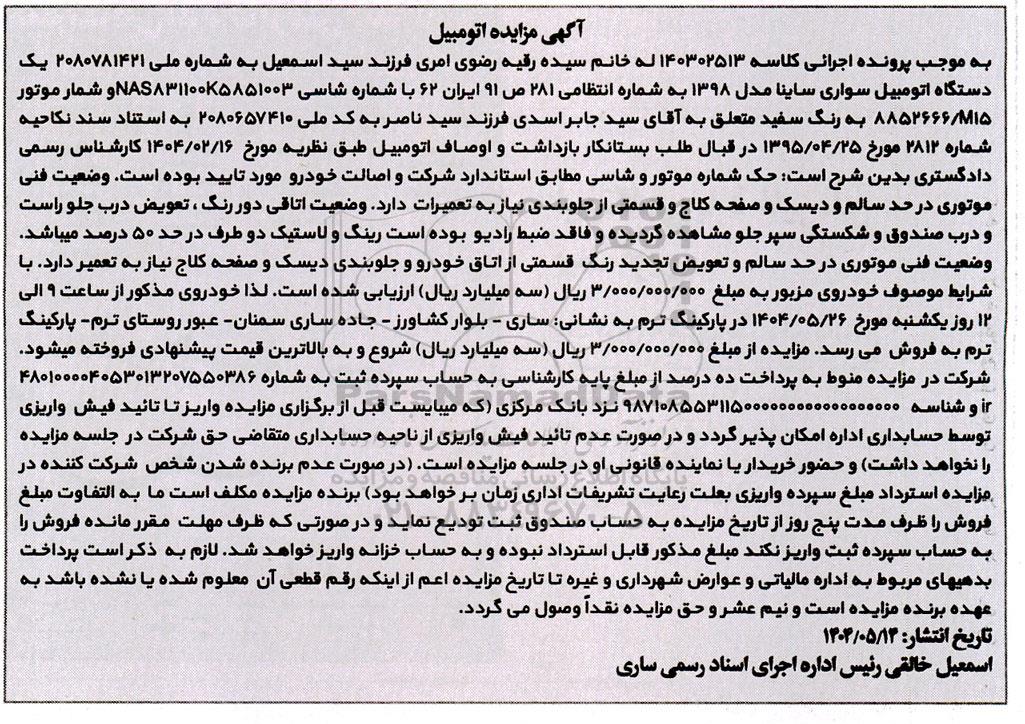 آگهی مزایده اتومبیل
به موجب پرونده اجرائی کلاسه ۱۴۰۳۰۲۵۱۳ له خانم سیده رقیه رضوی امری فرزند سید اسمعیل به شماره ملی ۲۰۸۰۷۸۱۴۲۱ یک
دستگاه اتومبیل سواری ساینا مدل ۱۳۹۸ به شماره انتظامی ۲۸۱ ص ۹۱ ایران ۶۲ با شماره شاسی NAS۸۳۱۱۰۰K۵۸۵۱۰۰۳و شمار موتور
۸۸۵۲۶۶۶/M۱۵ به رنگ سفید متعلق به آقای سید جابر اسدی فرزند سید ناصر به کد ملی ۲۰۸۰۶۵۷۴۱۰ به استناد سند نکاحیه
شماره ۲۸۱۲ مورخ ۱۳۹۵/۰۴/۲۵ در قبال طلب بستانکار بازداشت و اوصاف اتومبیل طبق نظریه مورخ ۱۴۰۴/۰۲/۱۶ کارشناس رسمی
دادگستری بدین شرح است: حک شماره موتور و شاسی مطابق استاندارد شرکت و اصالت خودرو مورد تایید بوده است. وضعیت فنی
موتوری در حد سالم و دیسک و صفحه کلاج و قسمتی از جلوبندی نیاز به تعمیرات دارد. وضعیت اتاقی دور رنگ ، تعویض درب جلو راست
و درب صندوق و شکستگی سپر جلو مشاهده گردیده و فاقد ضبط رادیو بوده است رینگ و لاستیک دو طرف در حد ۵۰ درصد میباشد.
وضعیت فنی موتوری در حد سالم و تعویض تجدید رنگ قسمتی از اتاق خودرو و جلوبندی دیسک و صفحه کلاج نیاز به تعمیر دارد. با
شرایط موصوف خودروی مزبور به مبلغ ۳/۰۰۰/۰۰۰/۰۰۰ ریال (سه میلیارد ریال) ارزیابی شده است. لذا خودروی مذکور از ساعت ۹ الی
۱۲ روز یکشنبه مورخ ۱۴۰۴/۰۵/۲۶ در پارکینگ ترم به نشانی: ساری - بلوار کشاورز - جاده ساری سمنان- عبور روستای ترم- پارکینگ
ترم به فروش می رسد. مزایده از مبلغ ۳/۰۰۰/۰۰۰/۰۰۰ ریال (سه میلیارد ریال) شروع و به بالاترین قیمت پیشنهادی فروخته میشود.
شرکت در مزایده منوط به پرداخت ده درصد از مبلغ پایه کارشناسی به حساب سپرده ثبت به شماره ۴۸۰۱۰۰۰۰۴۰۵۳۰۱۳۲۰۷۵۵۰۳۸۶
ir و شناسه نزد بانک مرکزی (که میبایست قبل از برگزاری مزایده واریز تا تائید فیش واریزی
توسط حسابداری اداره امکان پذیر گردد و در صورت عدم تائید فیش واریزی از ناحیه حسابداری متقاضی حق شرکت در جلسه مزایده
را نخواهد داشت) و حضور خریدار یا نماینده قانونی او در جلسه مزایده است. (در صورت عدم برنده شدن شخص شرکت کننده در
مزایده استرداد مبلغ سپرده واریزی بعلت رعایت تشریفات اداری زمان بر خواهد بود) برنده مزایده مکلف است ما به التفاوت مبلغ
فروش را ظرف مدت پنج روز از تاریخ مزایده به حساب صندوق ثبت تودیع نماید و در صورتی که ظرف مهلت مقرر مانده فروش را
به حساب سپرده ثبت واریز نکند مبلغ مذکور قابل استرداد نبوده و به حساب خزانه واریز خواهد شد. لازم به ذکر است پرداخت
بدهیهای مربوط به اداره مالیاتی و عوارض شهرداری و غیره تا تاریخ مزایده اعم از اینکه رقم قطعی آن معلوم شده یا نشده باشد به
عهده برنده مزایده است و نیم عشر و حق مزایده نقداً وصول می گردد.
تاریخ انتشار: ۱۴۰۴/۰۵/۱۴
اسمعیل خالقی رئیس اداره اجرای اسناد رسمی ساری
ParsNamadData
پایگاه اطلاع رسانی مناقصه و مزایده